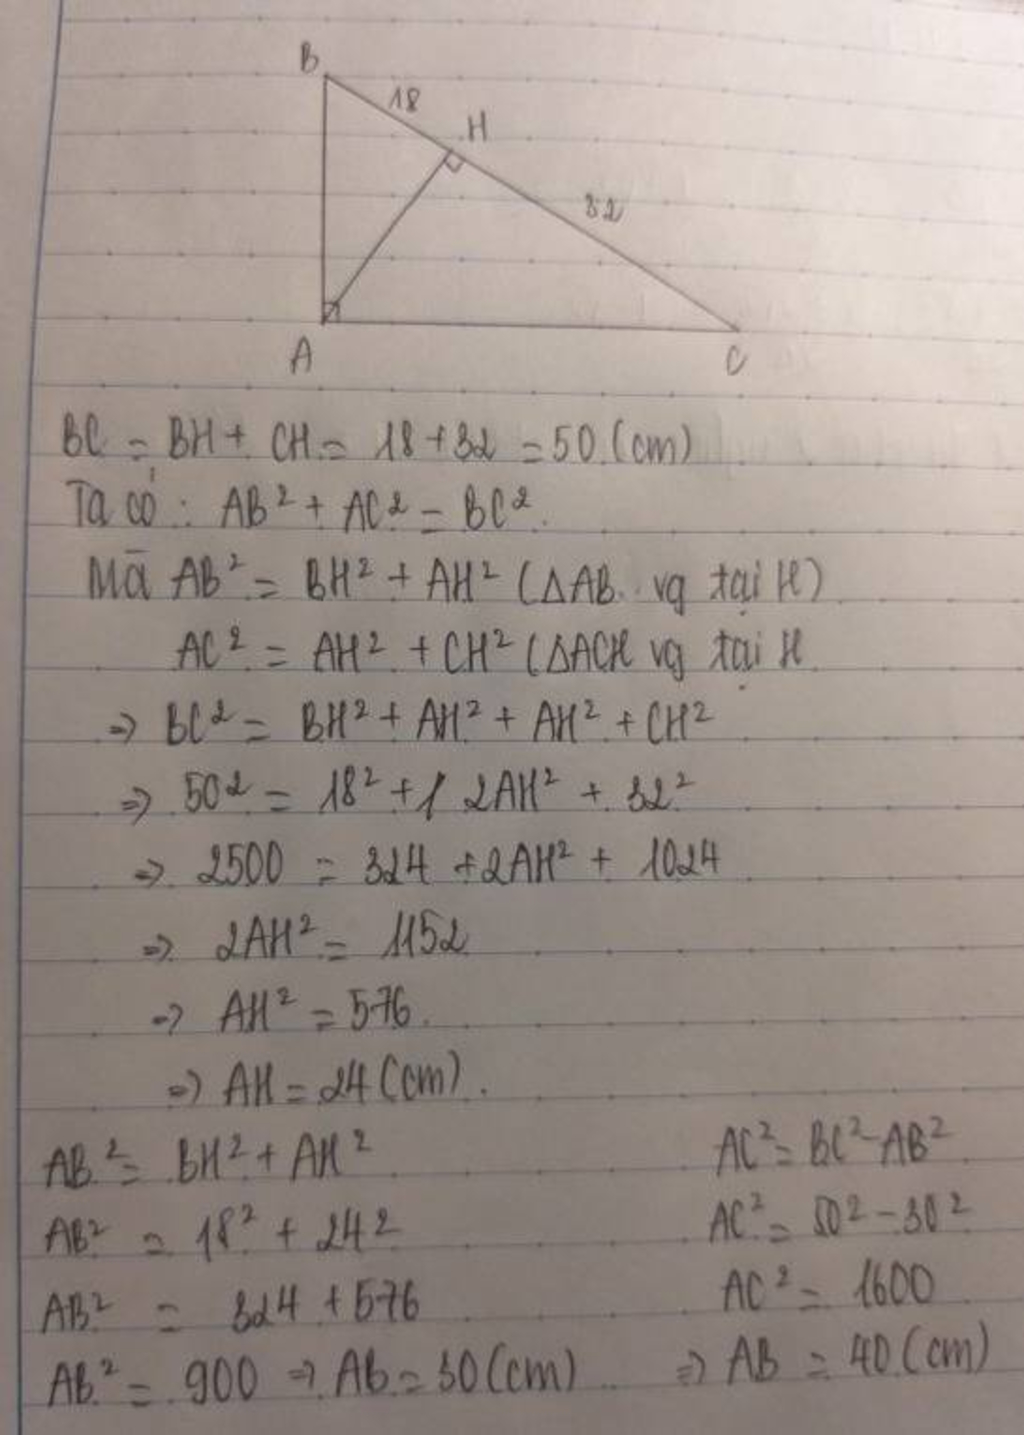 B
18
H
32
A
C
BC = BH + CH = 18 + 32 = 50 (cm)
Ta có : AB² + AC² = BC².
Mà AB² = BH² + AH² (△AB vg tại H)
AC² = AH² + CH² (△ACH vg tại H
=> BC² = BH² + AH² + AH² + CH²
=> 50² = 18² + 2AH² + 32²
=> 2500 = 324 + 2AH² + 1024
=> 2AH² = 1152
=> AH² = 576.
=> AH = 24 (cm).
AB² = BH² + AH²
AC² = BC² - AB²
AB² = 18² + 24²
AC² = 50² - 30²
AB² = 324 + 576
AC² = 1600
AB² = 900 => AB = 30 (cm)
=> AB = 40 (cm)